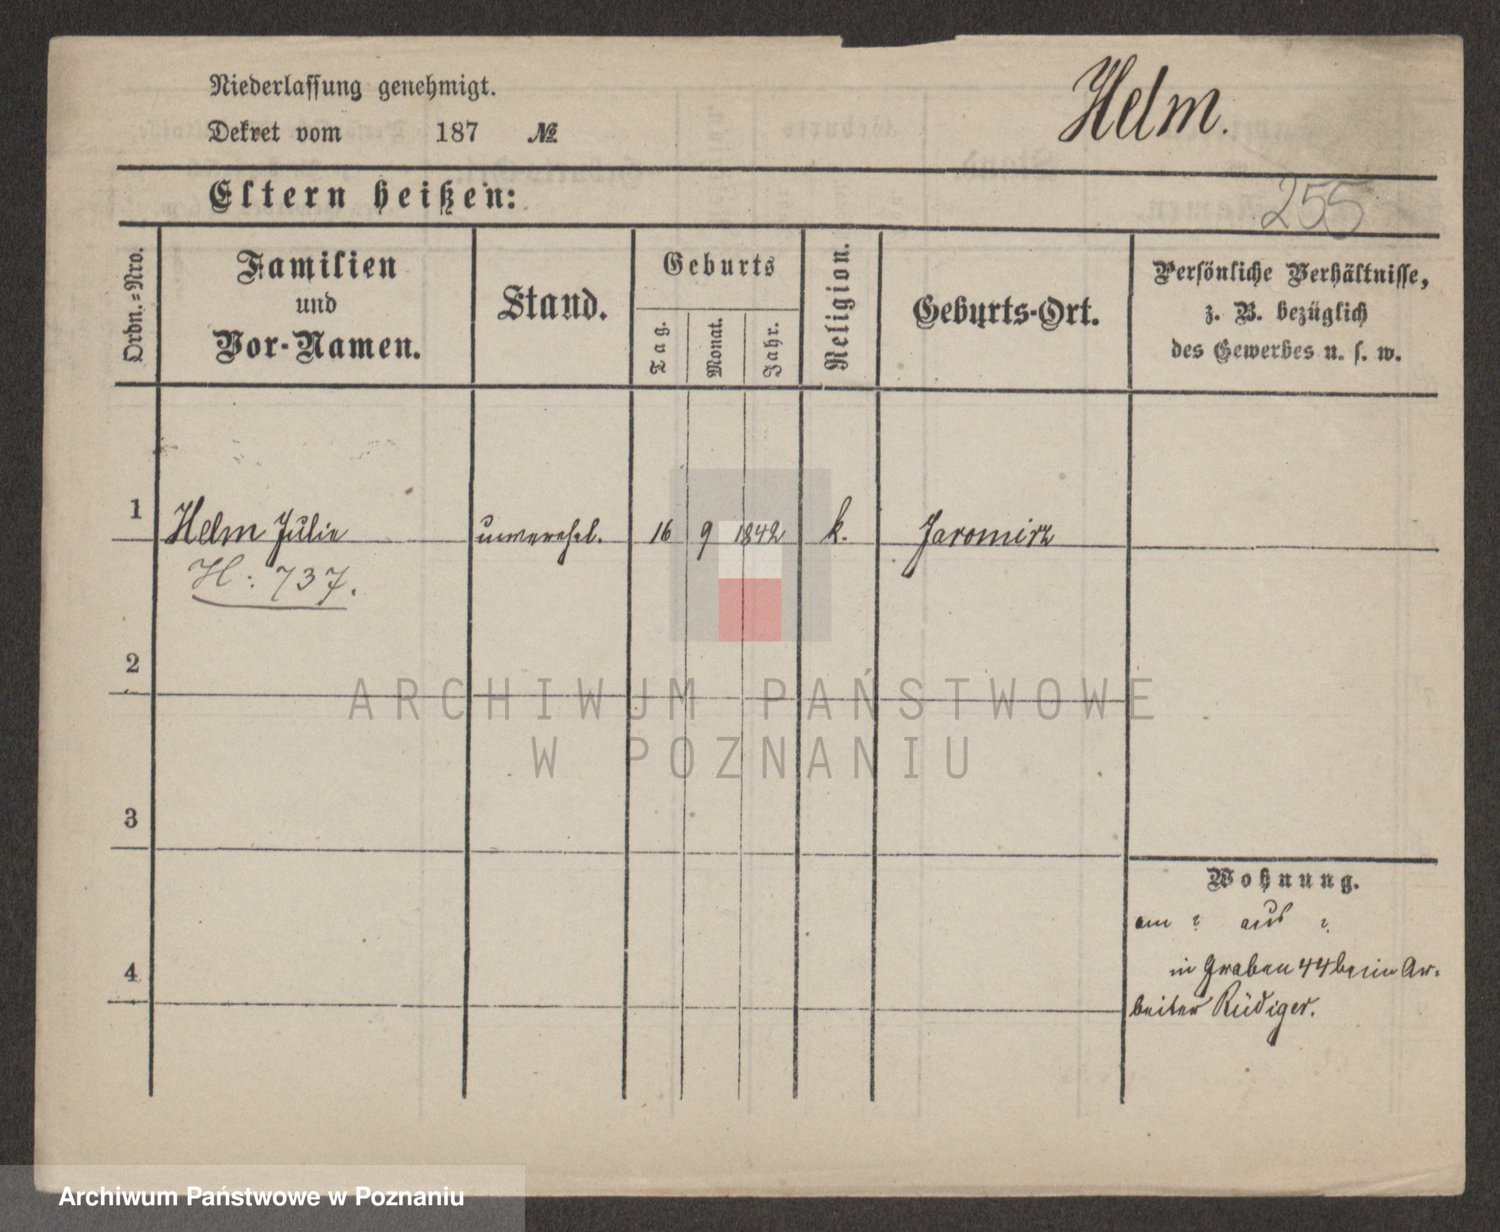 Niederlassung genehmigt.
Dekret vom 187 №
Helm.
Eltern heißen:
255
Ordn.=Nro.
Familien
und
Vor-Namen.
Stand.
Geburts
Tag.
Monat.
Jahr.
Religion.
Geburts-Ort.
Persönliche Verhältnisse,
z. B. bezüglich
des Gewerbes u. s. w.
1 Helm Julie unverehel. 16 9 1842 k. Jaromirz
H: 737.
2
ARCHIWUM PAŃSTWOWE
W POZNANIU
3
Wohnung.
am ? aus ?
4
in Graben 44 beim Ar-
beiter Rüdiger.
Archiwum Państwowe w Poznaniu